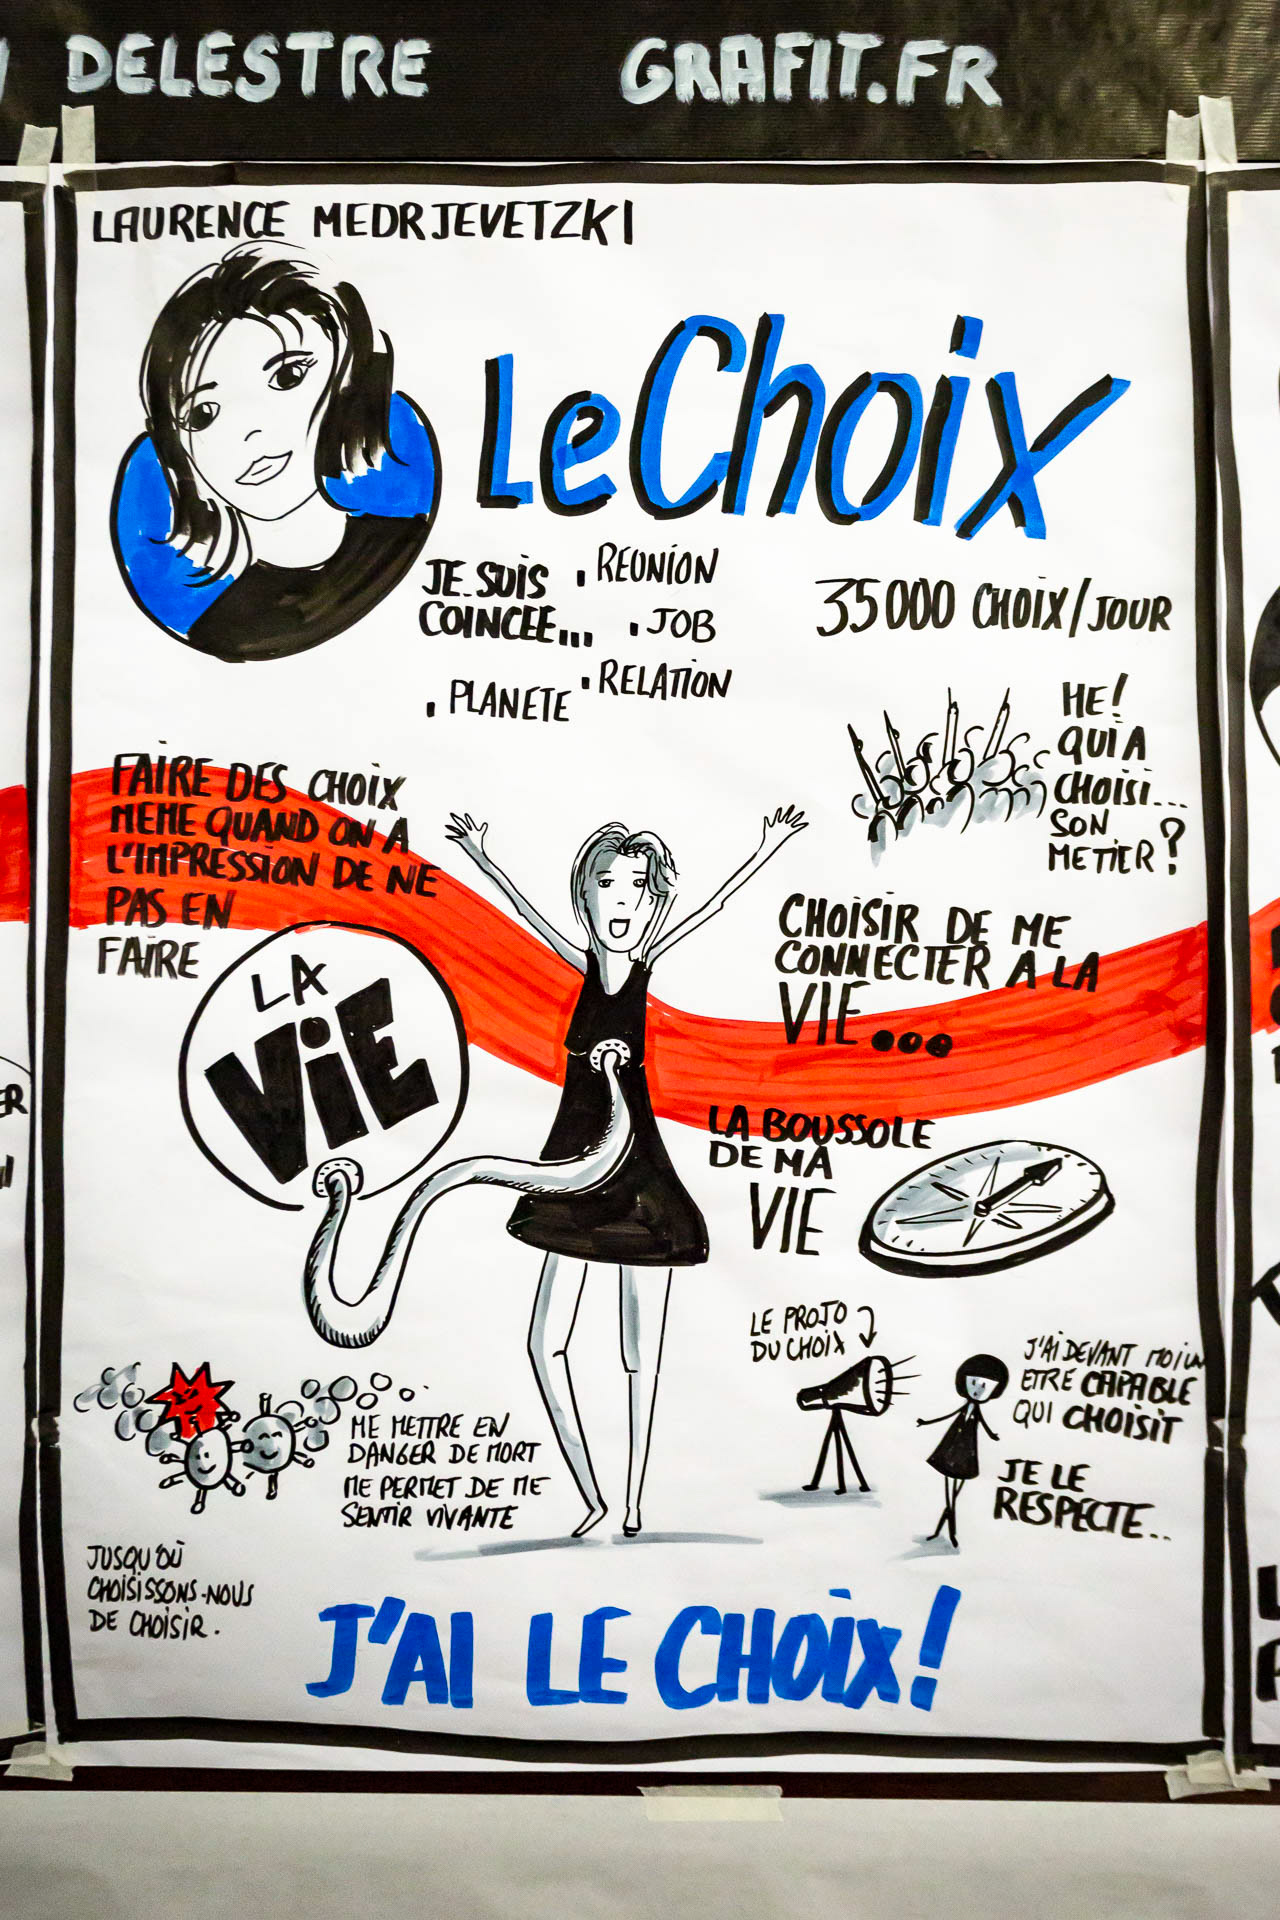 DELESTRE GRAFIT.FR
LAURENCE MEDRJEVETZKI
Le Choix
JE SUIS
COINCEE...
. REUNION
. JOB
. RELATION
. PLANETE
35000 CHOIX/JOUR
HE!
QUI A
CHOISI...
SON
METIER?
FAIRE DES CHOIX
MEME QUAND ON A
L'IMPRESSION DE NE
PAS EN
FAIRE
LA
VIE
CHOISIR DE ME
CONNECTER A LA
VIE...
LA BOUSSOLE
DE MA
VIE
LE PROJO
DU CHOIX
J'AI DEVANT MOI UN
ETRE CAPABLE
QUI CHOISIT
JE LE
RESPECTE...
ME METTRE EN
DANGER DE MORT
ME PERMET DE ME
SENTIR VIVANTE
JUSQU'OÙ
CHOISISSONS-NOUS
DE CHOISIR.
J'AI LE CHOIX!